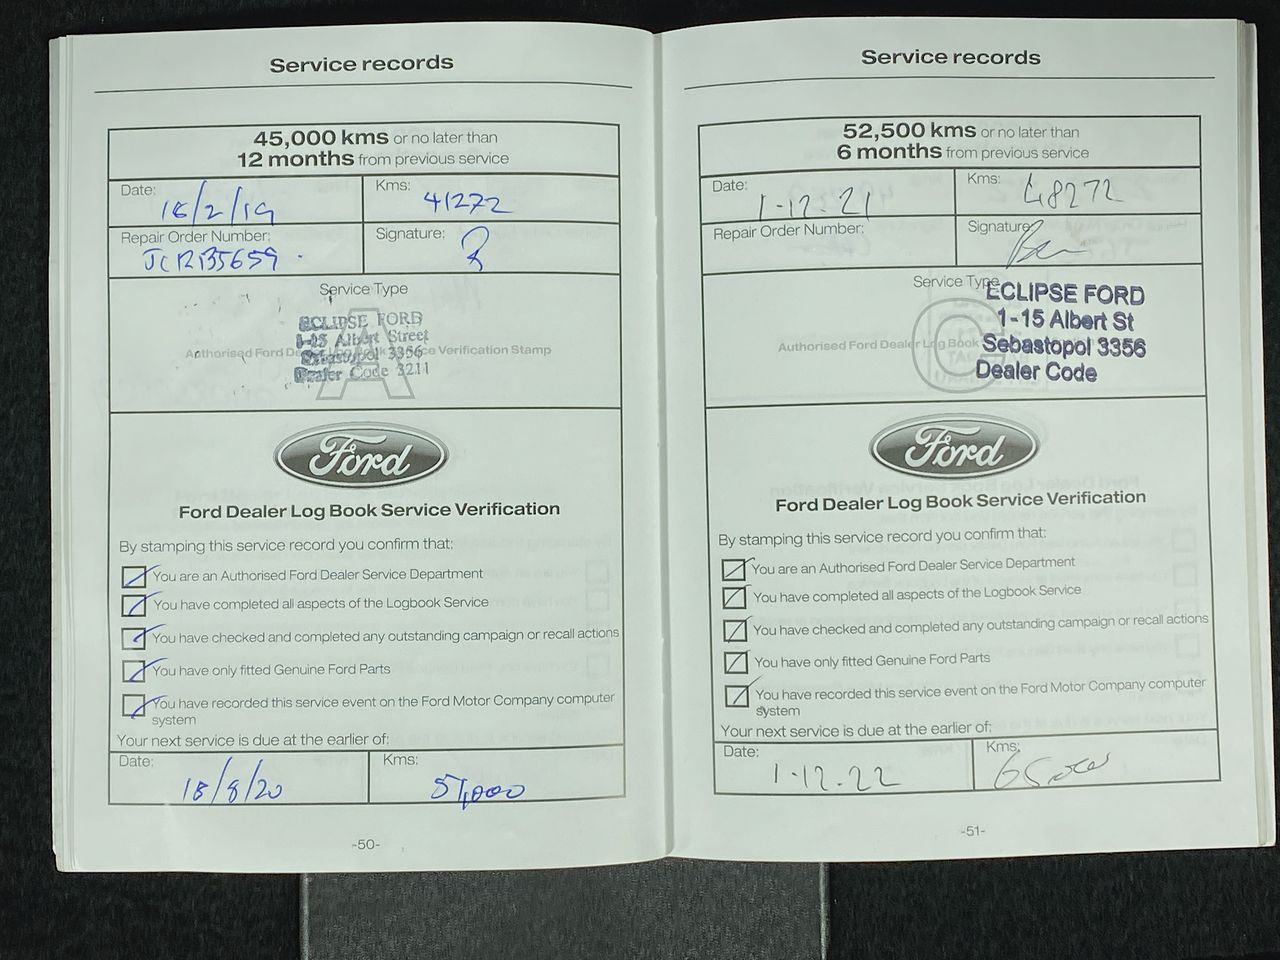 Service records
45,000 kms or no later than
12 months from previous service
Date:
18/2/19
Kms:
41272
Repair Order Number:
JCR135659
Signature:
Service Type
A
ECLIPSE FORD
1-15 Albert Street
Authorised Ford Dealer Log Book Service Verification Stamp
Sebastopol 3356
Dealer Code 3211
Ford
Ford Dealer Log Book Service Verification
By stamping this service record you confirm that:
You are an Authorised Ford Dealer Service Department
You have completed all aspects of the Logbook Service
You have checked and completed any outstanding campaign or recall actions
You have only fitted Genuine Ford Parts
You have recorded this service event on the Ford Motor Company computer
system
Your next service is due at the earlier of:
Date:
18/8/20
Kms:
-50-
Service records
52,500 kms or no later than
6 months from previous service
Date:
1-12-21
Kms:
48272
Repair Order Number:
Signature:
Service Type
C
ECLIPSE FORD
1-15 Albert St
Authorised Ford Dealer Log Book
Sebastopol 3356
Dealer Code
Ford
Ford Dealer Log Book Service Verification
By stamping this service record you confirm that:
You are an Authorised Ford Dealer Service Department
You have completed all aspects of the Logbook Service
You have checked and completed any outstanding campaign or recall actions
You have only fitted Genuine Ford Parts
You have recorded this service event on the Ford Motor Company computer
system
Your next service is due at the earlier of:
Date:
1-12-22
Kms:
65000
-51-